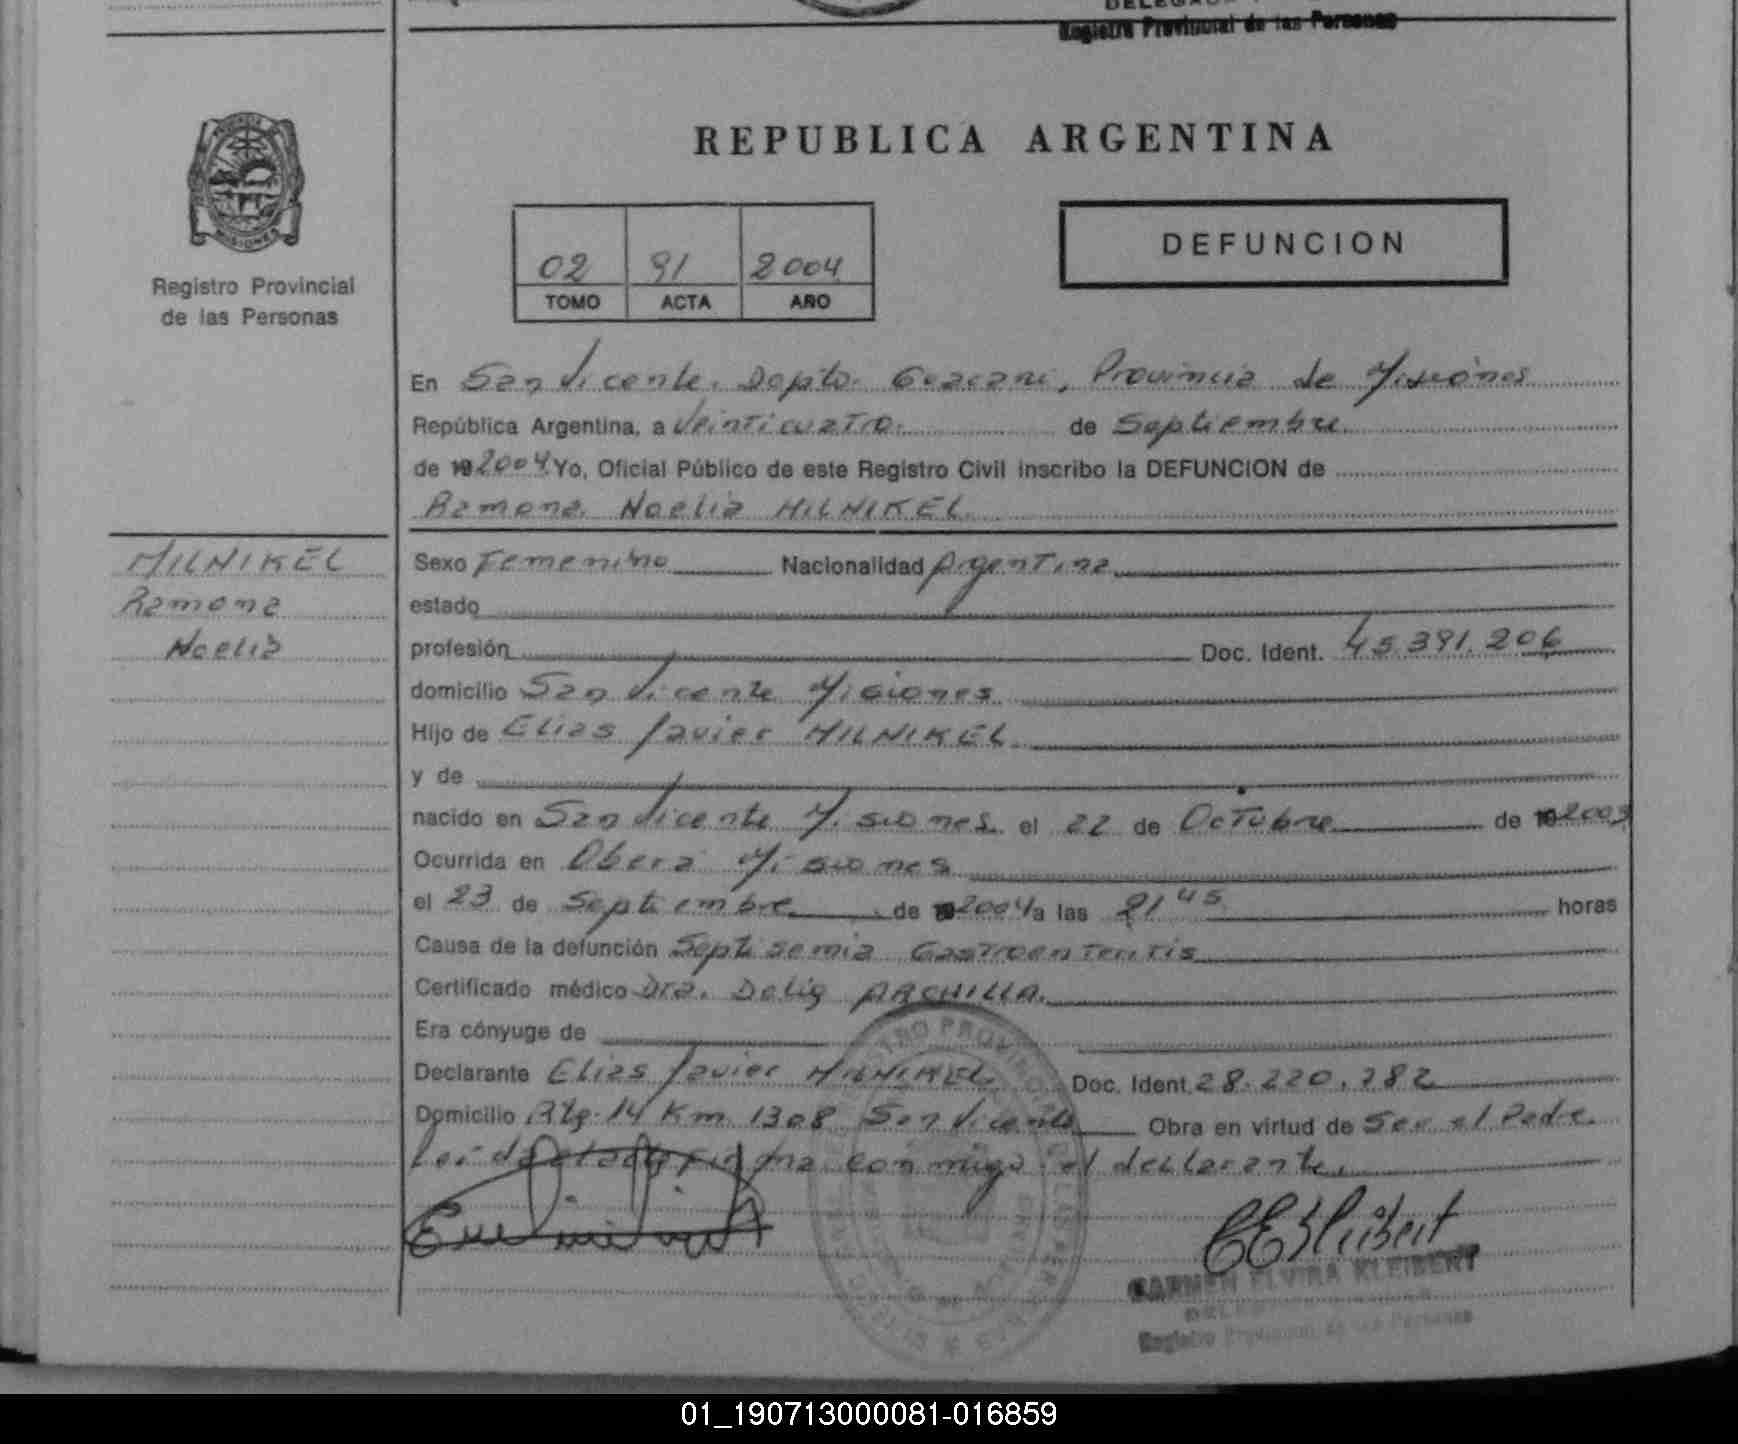 Registro Provincial de las Personas
REPUBLICA ARGENTINA
MISIONES
Registro Provincial
de las Personas
02 91 2004
TOMO ACTA AÑO
DEFUNCION
En San Vicente. Depto. Guarani, Provincia de Misiones
República Argentina, a Veinticuatro. de Septiembre
de 19 2004 Yo, Oficial Público de este Registro Civil inscribo la DEFUNCION de
Ramona Noelia MILNIKEL
MILNIKEL
Ramona
Noelia
Sexo Femenino Nacionalidad Argentina
estado
profesión Doc. Ident. 45.391.206
domicilio San Vicente Misiones
Hijo de Elias Javier MILNIKEL
y de
nacido en San Vicente Misiones el 22 de Octubre de 19 2003
Ocurrida en Oberá Misiones
el 23 de Septiembre de 19 2004 a las 21 45 horas
Causa de la defunción Septisemia Gastroenteritis
Certificado médico Dra. Delia ARCHILLA.
Era cónyuge de
Declarante Elias Javier MILNIKEL Doc. Ident. 28.220.782
Domicilio Rta. 14 Km 1308 San Vicente Obra en virtud de Ser el Padre.
Leida el acta firma conmigo el declarante.
CEKleibert
CARMEN ELVIRA KLEIBERT
Registro Provincial de las Personas
01_190713000081-016859